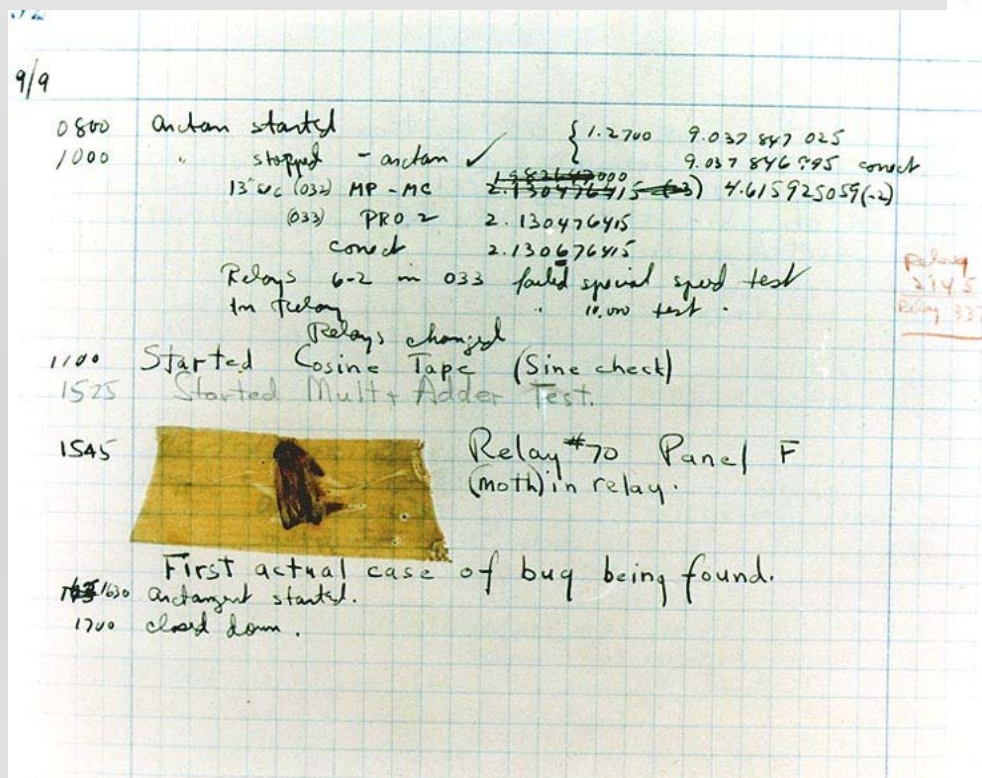 9/9
0800 arctan started { 1.2700 9.037 847 025
1000 " stopped - arctan ✓ { 9.037 846 995 correct
13"sec (032) MP - MC 2.130476415 (-3) 4.615925059(-2)
(033) PRO 2 2.130476415
correct 2.130676415
Relays 6-2 in 033 failed special speed test
In Relay " 10.000 test.
Relays changed
1100 Started Cosine Tape (Sine check)
1525 Started Mult+Adder Test.
1545 Relay #70 Panel F
(moth) in relay.
First actual case of bug being found.
1630 arctangent started.
1700 closed down.
Relay
2145
Relay 337